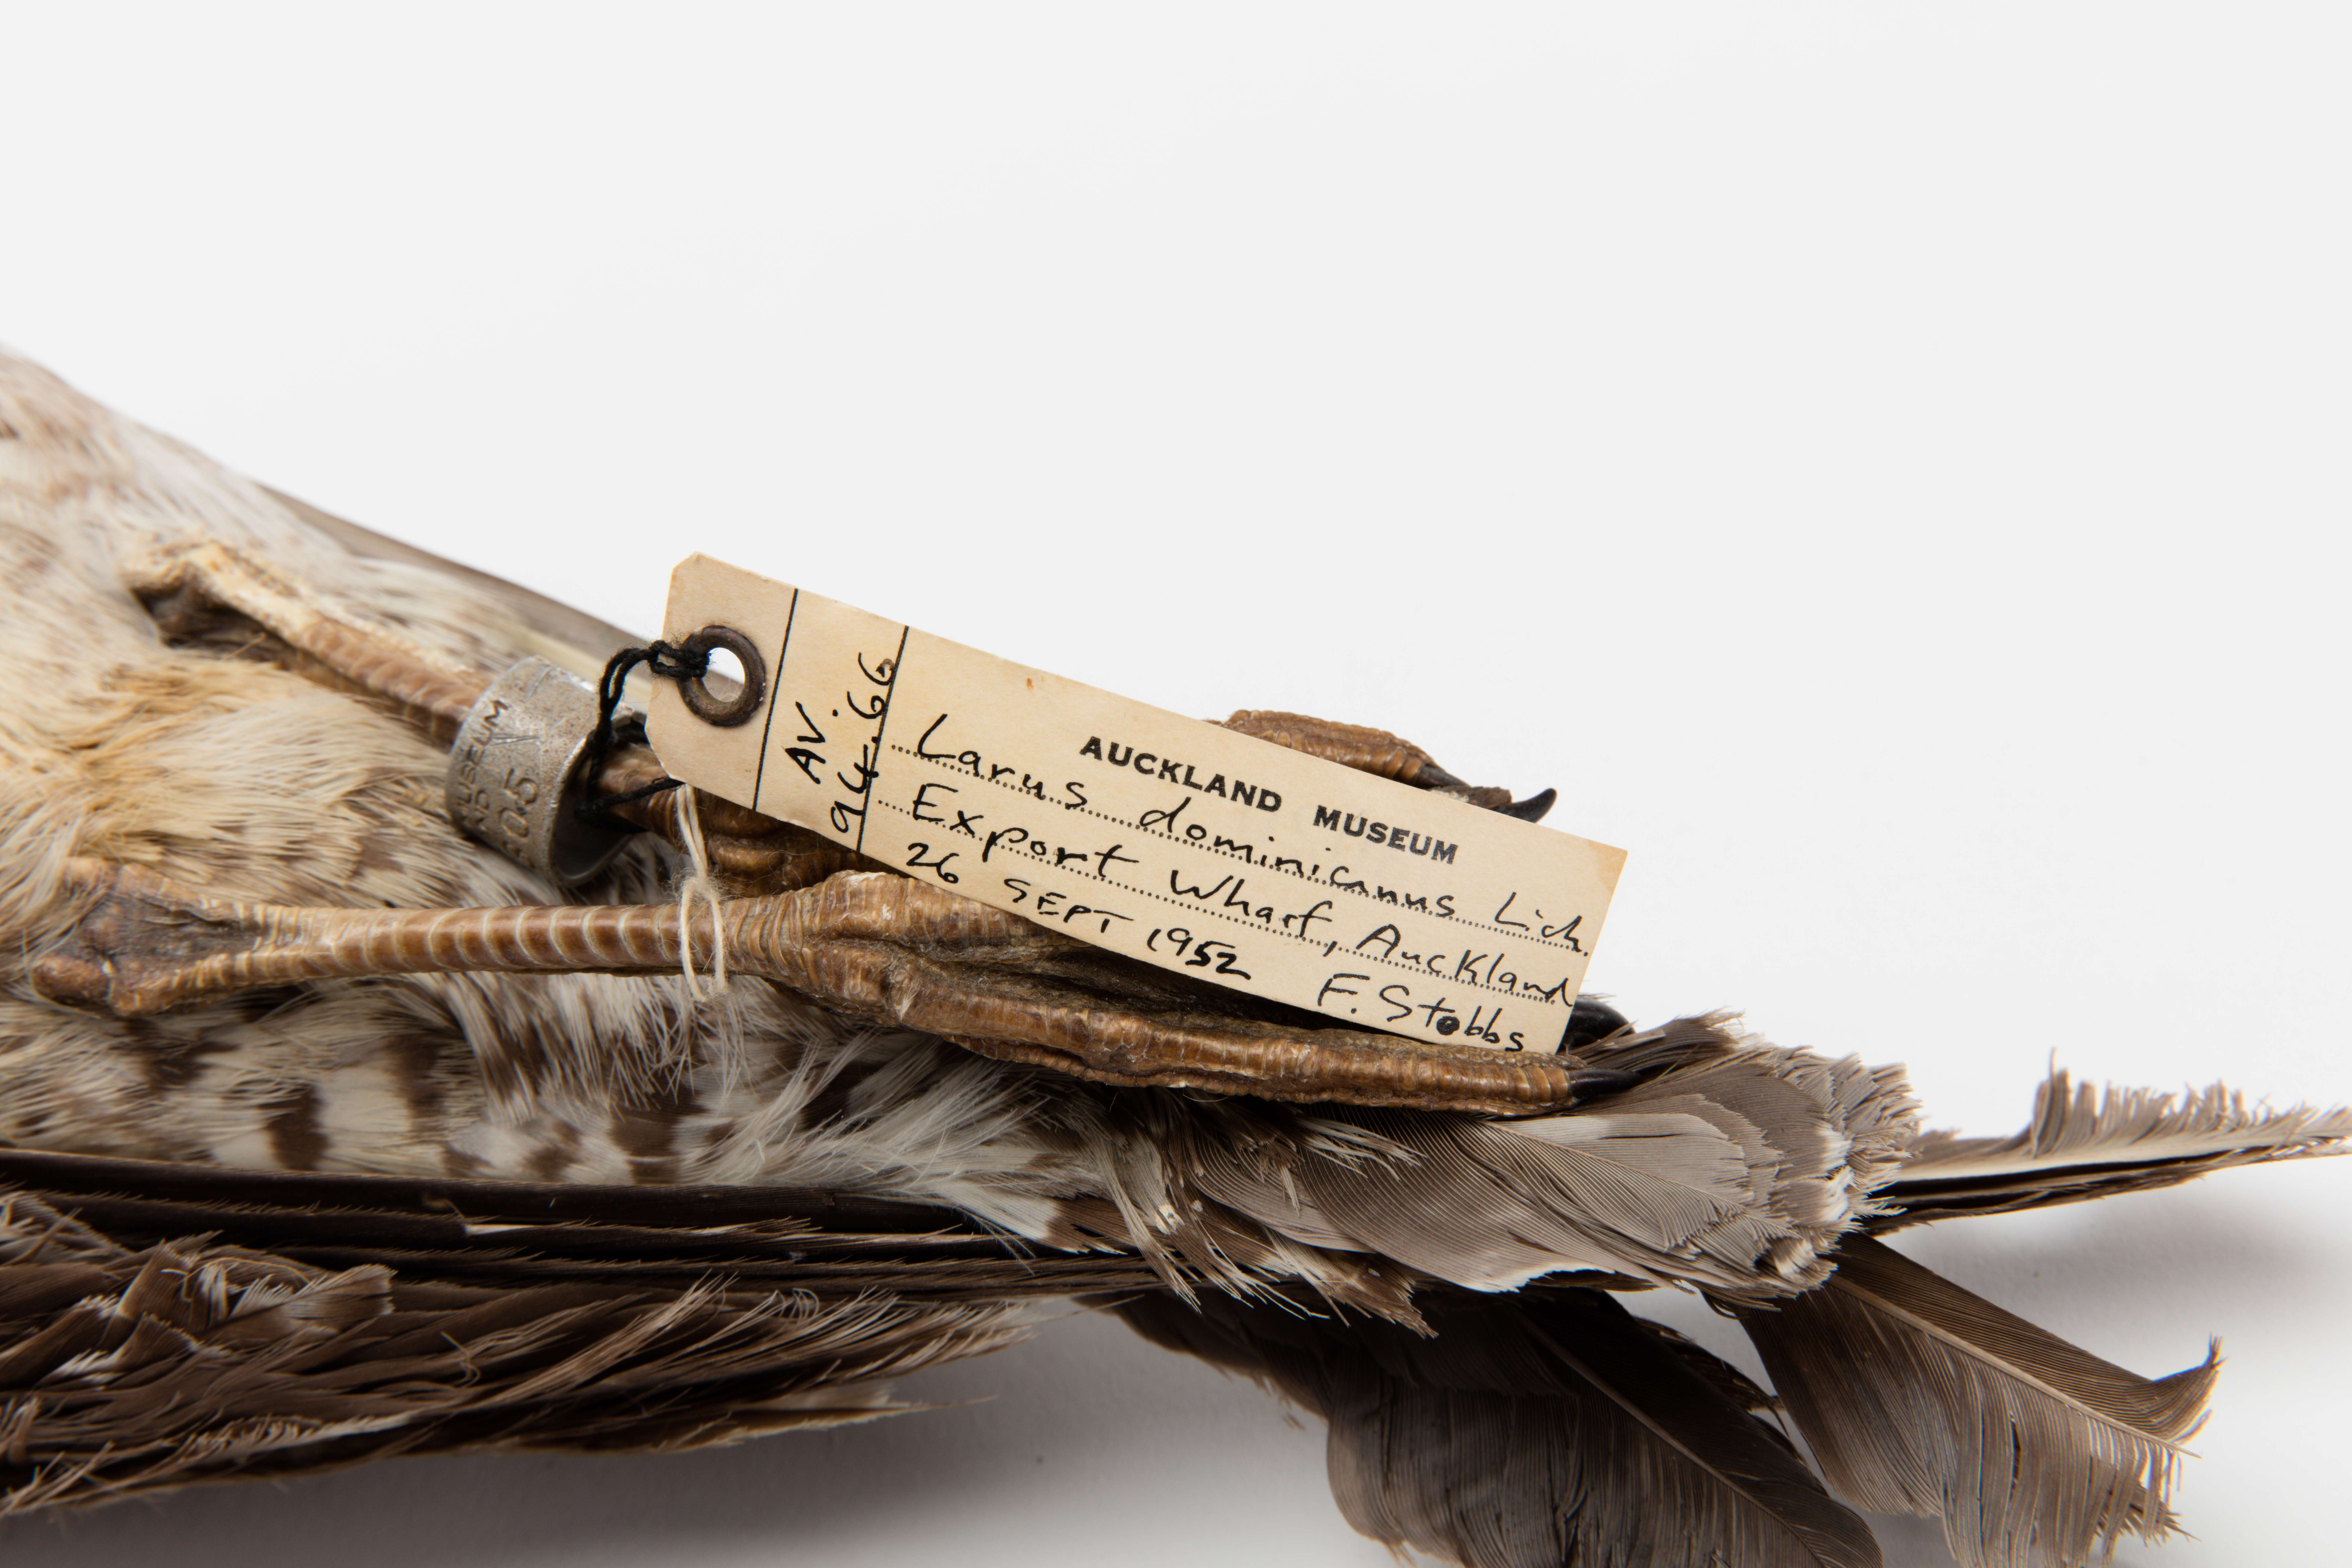 AUCKLAND MUSEUM
AV.
94.66
Larus dominicanus Lich.
Export Wharf, Auckland
26 SEPT 1952 F. Stobbs
MUSEUM
ND
05